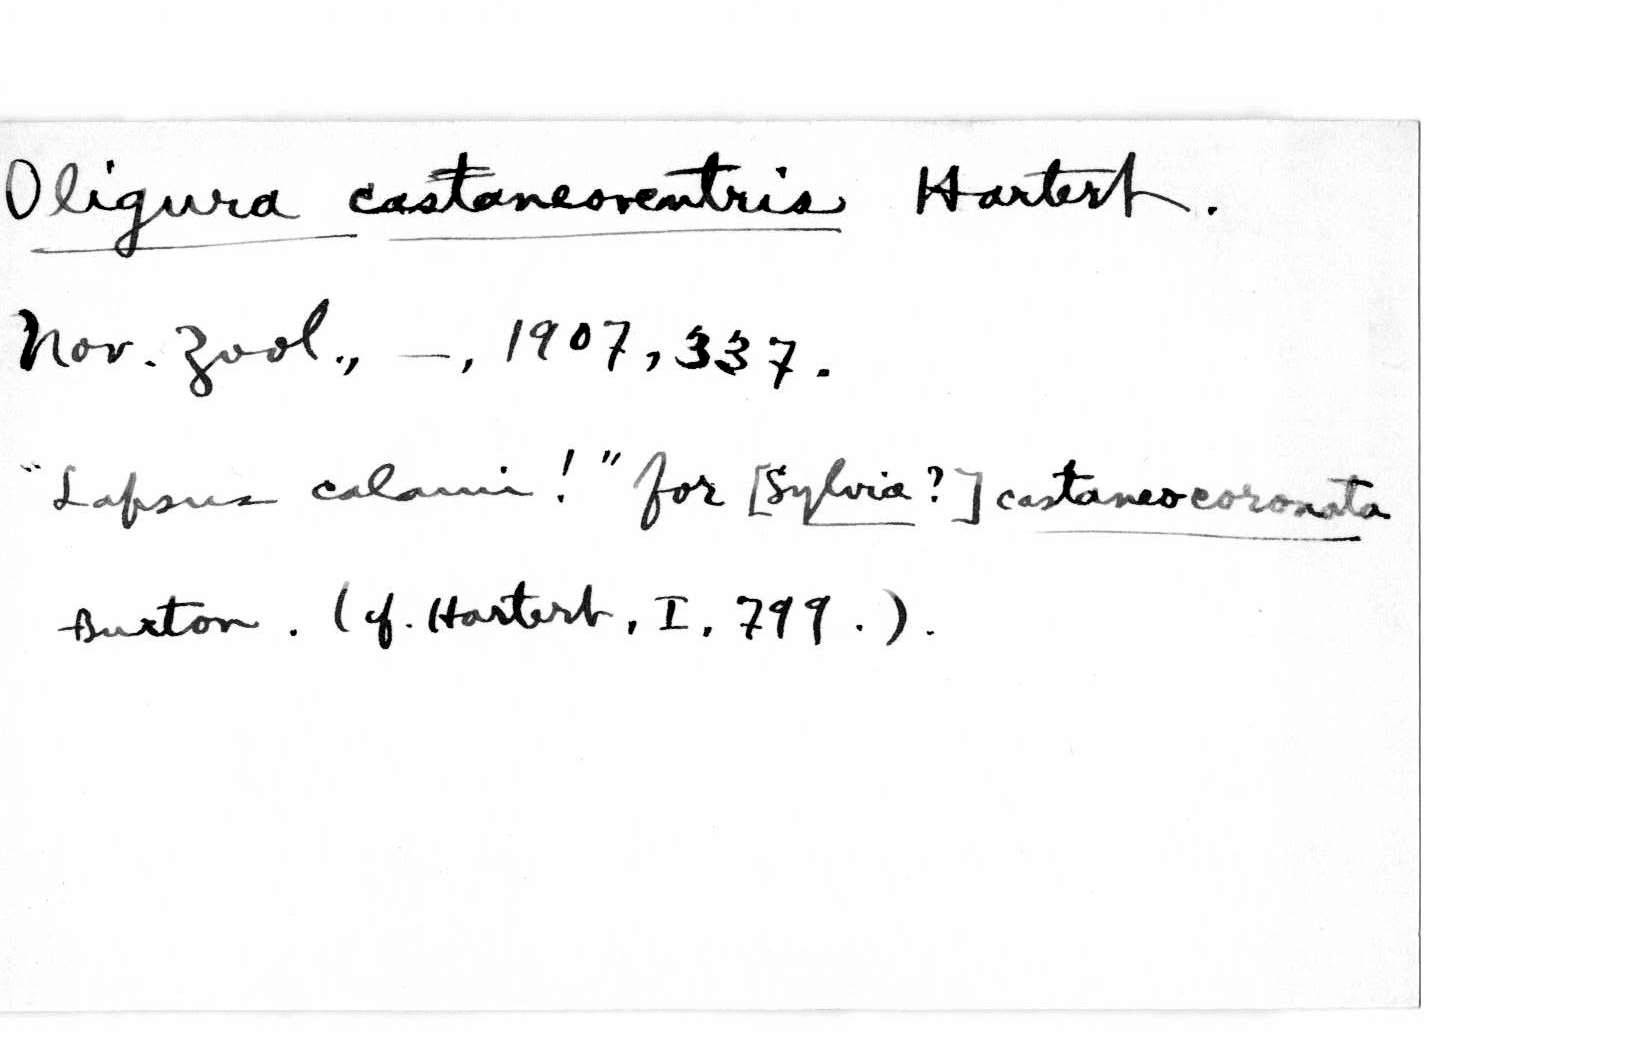 Oligura castaneoventris Hartert.
Nov. Zool., —, 1907, 337.
"Lapsus calami!" for [Sylvia?] castaneocoronata
Burton. (cf. Hartert, I, 799.).